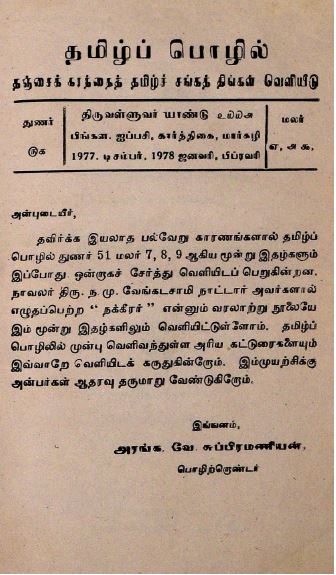 தமிழ்ப் பொழில்
தஞ்சைக் கரந்தைத் தமிழ்ச் சங்கத் திங்கள் வெளியீடு
துணர்
ருக
திருவள்ளுவர் யாண்டு ௨௦௦௮
பிங்கள. ஐப்பசி, கார்த்திகை, மார்கழி
1977. டிசம்பர், 1978 ஜனவரி, பிப்ரவரி
மலர்
எ, அ, ௯,
அன்புடையீர்,
தவிர்க்க இயலாத பல்வேறு காரணங்களால் தமிழ்ப்
பொழில் துணர் 51 மலர் 7, 8, 9 ஆகிய மூன்று இதழ்களும்
இப்போது ஒன்றாகச் சேர்த்து வெளியிடப் பெறுகின்றன.
நாவலர் திரு. ந. மு. வேங்கடசாமி நாட்டார் அவர்களால்
எழுதப்பெற்ற “ நக்கீரர் ” என்னும் வரலாற்று நூலையே
இம் மூன்று இதழ்களிலும் வெளியிட்டுள்ளோம். தமிழ்ப்
பொழிலில் முன்பு வெளிவந்துள்ள அரிய கட்டுரைகளையும்
இவ்வாறே வெளியிடக் கருதுகின்றோம். இம்முயற்சிக்கு
அன்பர்கள் ஆதரவு தருமாறு வேண்டுகிறோம்.
இங்ஙனம்,
அரங்க. வே. சுப்பிரமணியன்,
பொழிற்றொண்டர்